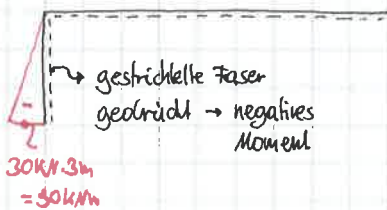 gestrichelte Faser
gedrückt → negatives
Moment
-
30kN·3m
= 90kNm